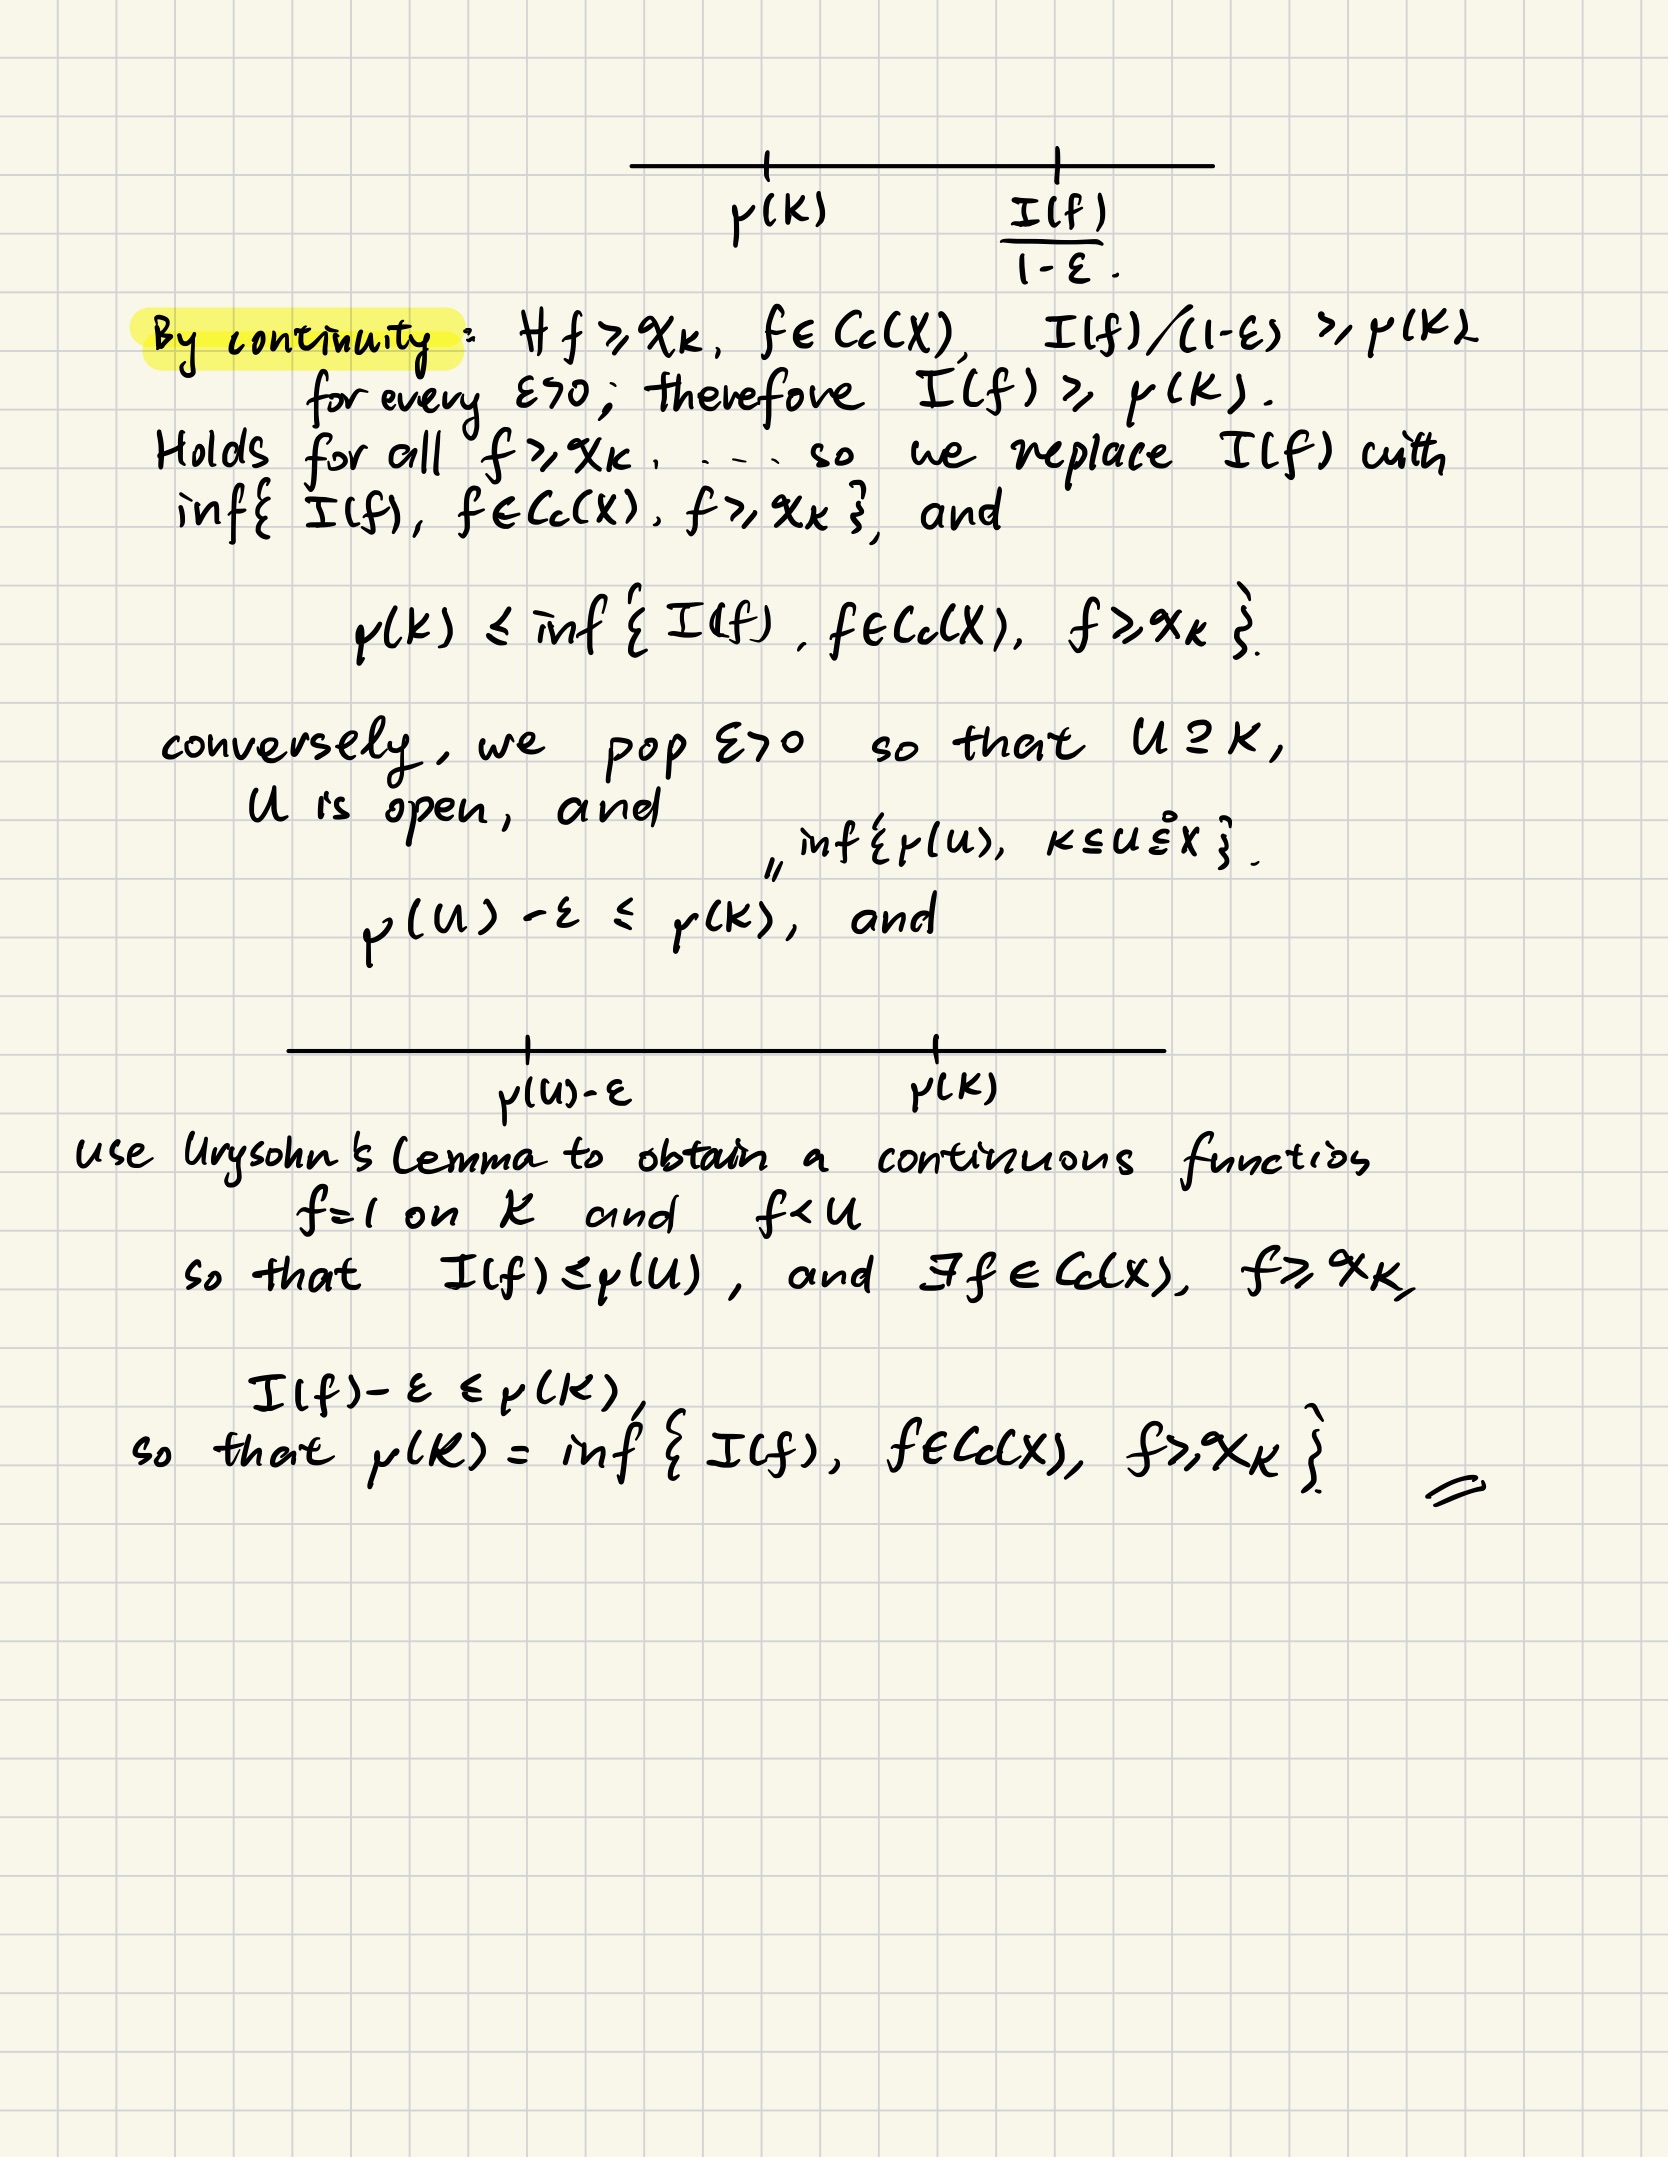 μ(K)    I(f)/(1-ε).
By continuity: ∀f ≥ χ_K, f ∈ Cc(X), I(f)/(1-ε) ≥ μ(K)
for every ε>0; therefore I(f) ≥ μ(K).
Holds for all f ≥ χ_K, .... so we replace I(f) with
inf{ I(f), f∈Cc(X), f ≥ χ_K }, and
μ(K) ≤ inf { I(f), f∈Cc(X), f ≥ χ_K }.
conversely, we pop ε>0 so that U ⊇ K,
U is open, and
" inf{μ(U), K ⊆ U ⊆° X }.
μ(U) - ε ≤ μ(K), and
μ(U)-ε    μ(K)
use Urysohn's Lemma to obtain a continuous function
f=1 on K and f ≺ U
so that I(f) ≤ μ(U), and ∃f ∈ Cc(X), f ≥ χ_K,
I(f) - ε ≤ μ(K),
so that μ(K) = inf { I(f), f∈Cc(X), f ≥ χ_K }.